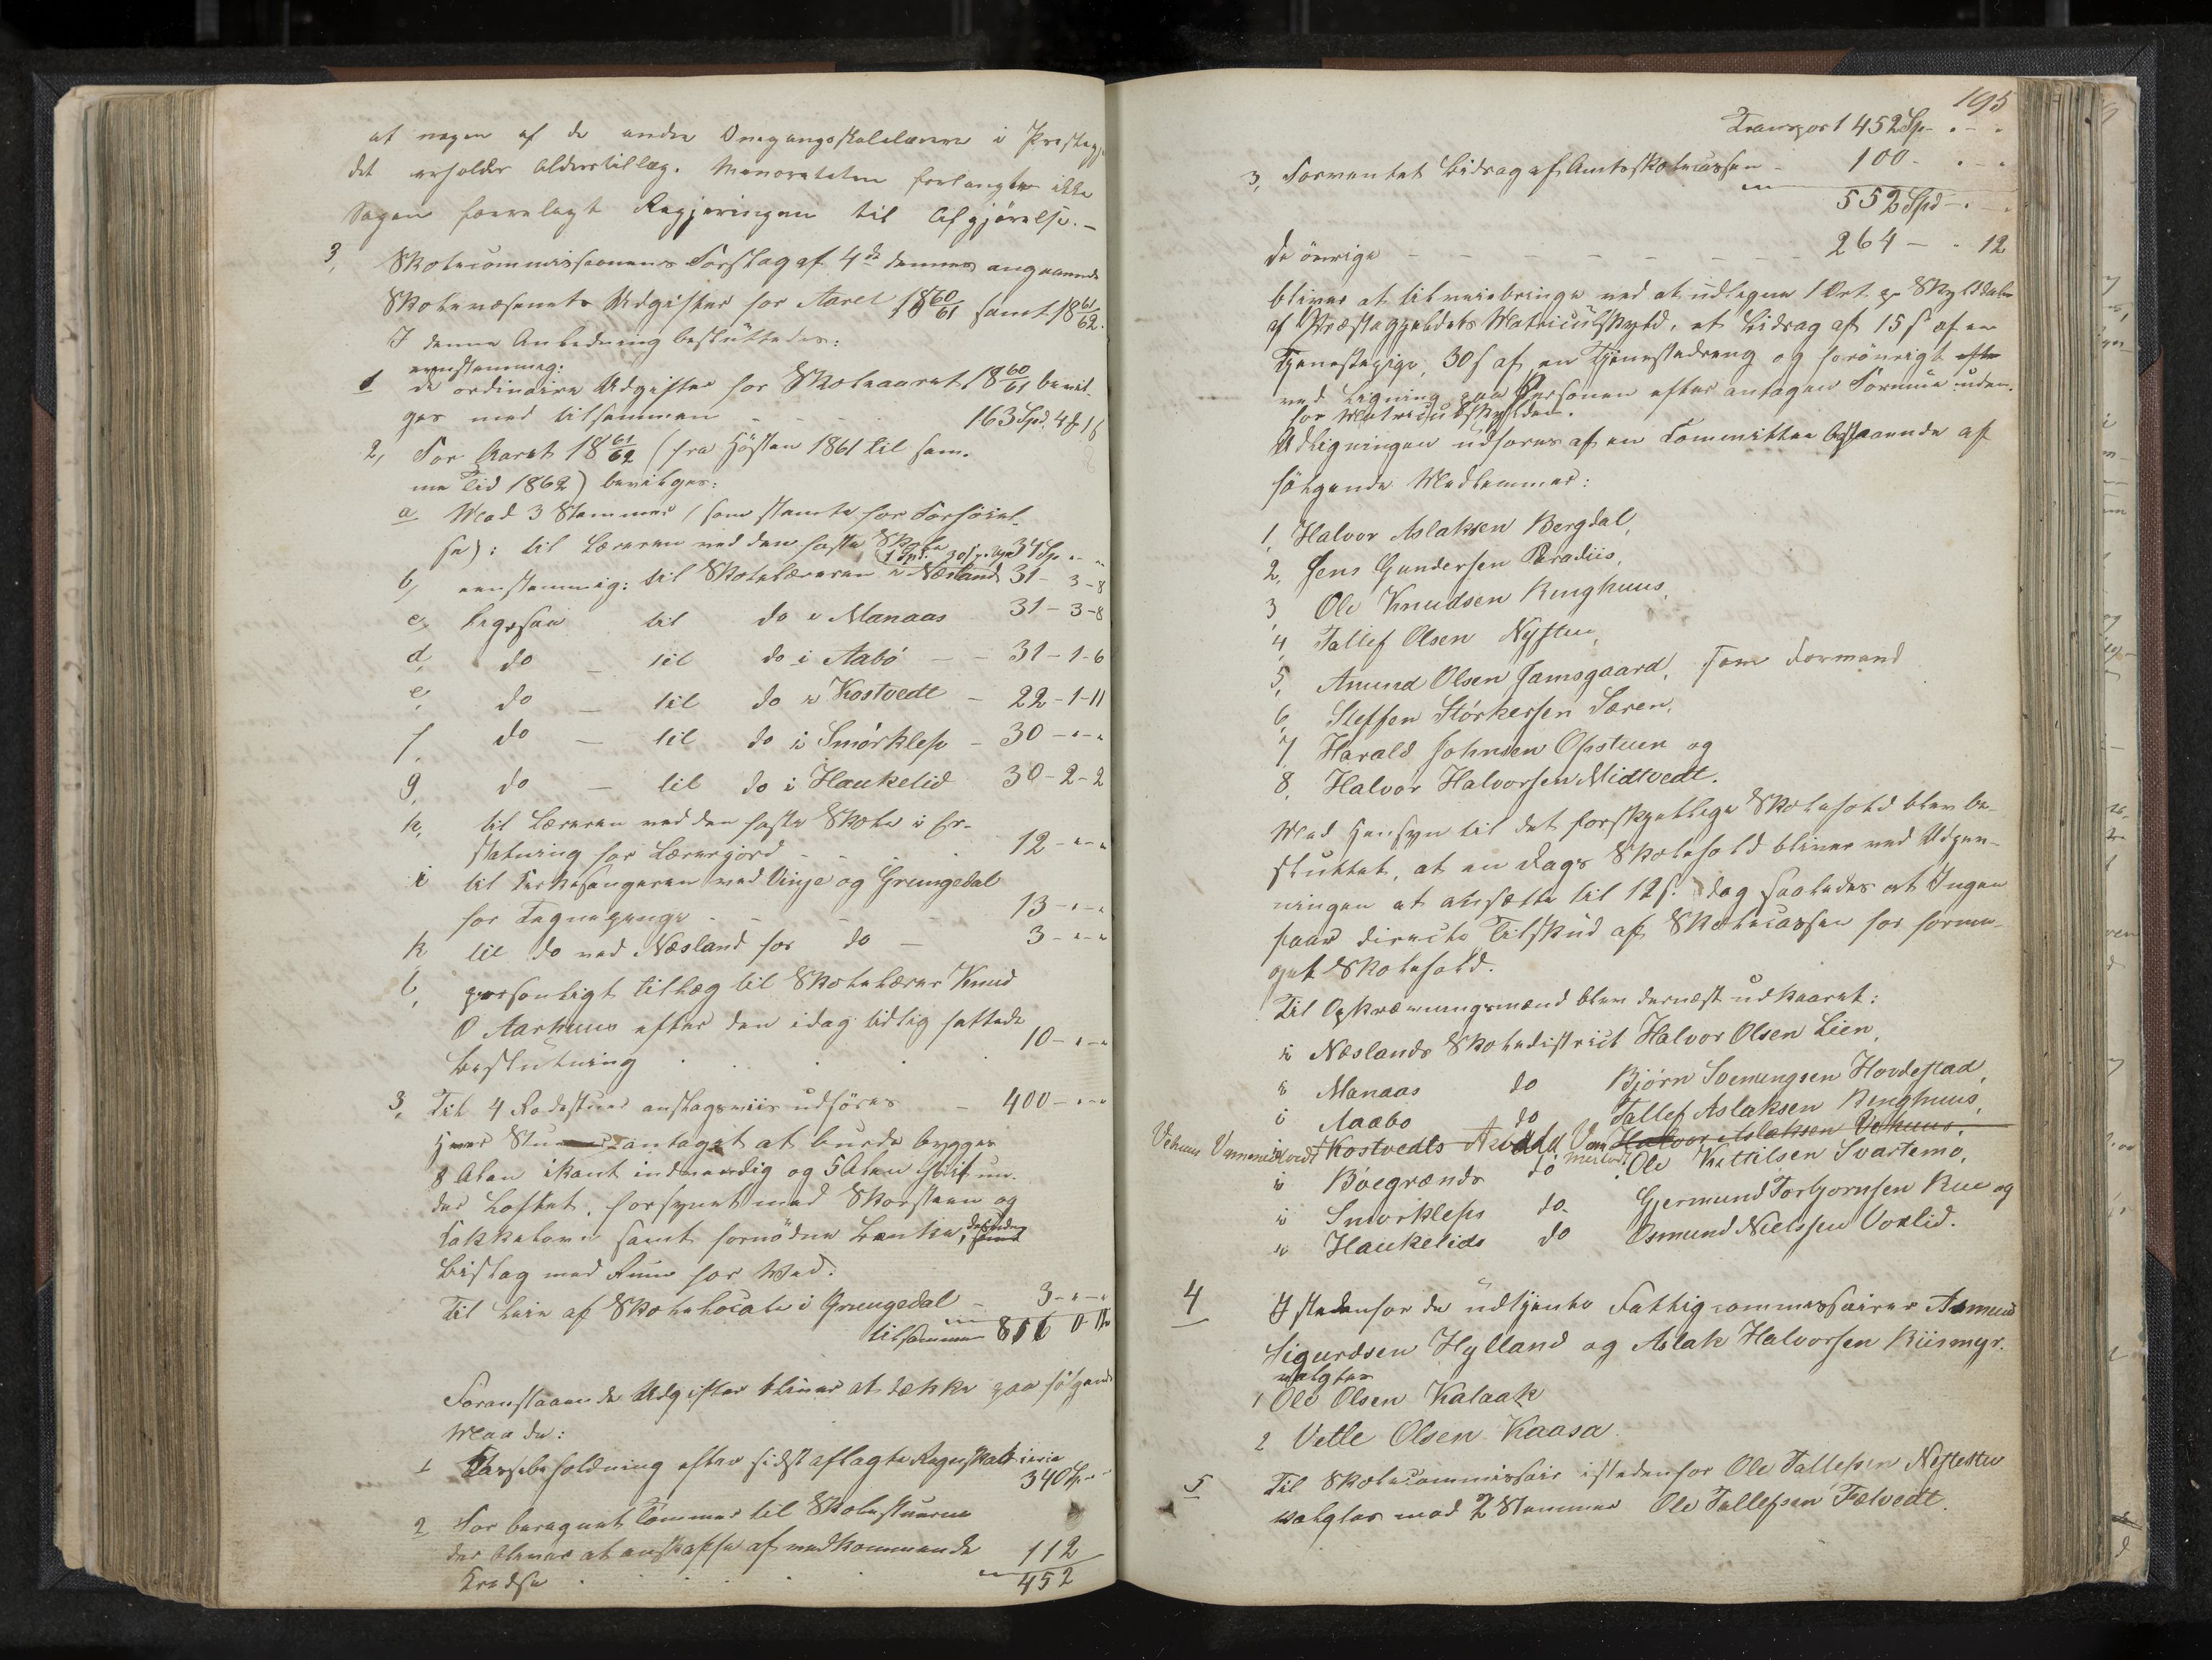 at nogen af de andre Omgangsskolelærere i Præstegj
det erholder Alderstillæg. Minoriteten forlangte ikke
Sagen forelagt Regjeringen til Afgjørelse. –
3, Skolecommissionens Forslag af 4de dennes angaaende
Skolevæsenets Udgifter for Aaret 1860/61 samt 1861/62.
I denne Anledning besluttedes:
eenstemmig:
1 de ordinaire Udgifter for Skoleaaret 1860/61 bevil-
ges med tilsammen 163 Spd. 4 ß 1 ß
2, For Aaret 1861/62 (fra Høsten 1861 til sam-
me Tid 1862) bevilges:
a Mod 3 Stemmer (som stemte for Forhøiel-
se): til Læreren ved den faste Skole
1 Spd. 30 ß pr. Uge 34 Sp. " "
b, eenstemmig: til Skolelæreren i Næsland 31 - 3 - 8
c, ligesaa til do i Manaas 31 - 3 - 8
d, do – til do i Aabö – – 31 - 1 - 6
e, do – til do i Kostvedt – 22 - 1 - 11
f, do – til do i Smörklep – 30 - " - "
g, do – til do i Haukelid 30 - 2 - 2
h, til Læreren ved den faste Skole i Er-
statning for Lærerjord 12 - " - "
i til Kirkesangeren ved Vinje og Grungedal
for Degnepenge 13 - " - "
k til do ved Næsland for do – 3 - " - "
l, personligt Tillæg til Skolelærer Knud
O Aarhuus efter den idag tidlig fattede
Beslutning 10 - " - "
3, Til 4 Rodestuer anslagsviis udföres – 400 - " - "
Hver Stue antaget at burde bygges
8 Alen i kant indvendig og 5 Alen höit un-
der Loftet, forsynet med Skorsteen og
Kakkelovn samt fornödne Bænke, desuden
Bislag med Rum for Ved.
Til Leie af Skolelocale i Grungedal – 3 - " - "
tilsammen 816 0 11
Foranstaaende Udgifter bliver at dække paa følgende
Maade:
1 Kassebeholdning efter sidst aflagte Regnskab circa
340 Sp. - -
2 For beregnet Tømmer til Skolestuerne
der bliver at anskaffe af vedkommende 112
Kredse 452
195
Transport 452 Sp - " - "
3, Forventet Bidrag af Amtsskolecassen – 100 - " - "
552 Spd - " - "
de övrige – – – – – – – 264 – " 12
bliver at tilveiebringe ved at udlegne 1 Ort pr Skylddaler
af Præstegjeldets Matriculskyld, et Bidrag af 15 ß af en
Tjenestepige, 30 ß af en Tjenestedreng og forövrigt
ved Ligning paa Personen efter antagen Formue uden-
for Matriculskylden.
Udligningen udföres af en Committee bestaaende af
fölgende Medlemmer:
1, Halvor Aslaksen Bergdal,
2, Jens Gundersen Paradiis,
3, Ole Knudsen Ringhuus,
4, Tallef Olsen Nystue,
5, Amund Olsen Jamsgaard, som Formand
6, Steffen Störkersen Særen,
7, Harald Johnsen Opstuen og
8, Halvor Halvorsen Midtvedt.
Med Hensyn til det forskjellige Skolehold blev be-
sluttet, at en Dags Skolehold bliver ved Udgen-
ningen at ansætte til 12 ß. Dag saaledes at Ingen
faar directe Tilskud af Skolecassen for forme-
get Skolehold.
Til Opkrævningsmænd blev dernæst udkaaret:
i Næslands Skoledistrict Halvor Olsen Lien,
i Manaas do Björn Svenungsen Hovdestad,
i Aabö do Tallef Aslaksen Ringhuus,
i Kostvedts Halvor Aslaksen Vehuus,
i Böegrænds do Ole Kittilsen Svartemo,
i Smörkleps do Gjermund Torbjornsen Rue og
i Haukelids do Osmund Nielssen Voxlid.
4 Istedenfor de udtjente Fattigcommissairer Asmund
Sigurdsen Hylland og Aslak Halvorsen Riismyr.
valgtes
1 Ole Olsen Kalaak
2 Vetle Olsen Kaasa
5 Til Skolecommissair istedenfor Ole Tallefsen Nystestu
valgtes med 2 Stemmer Ole Tallefsen Fælvedt.